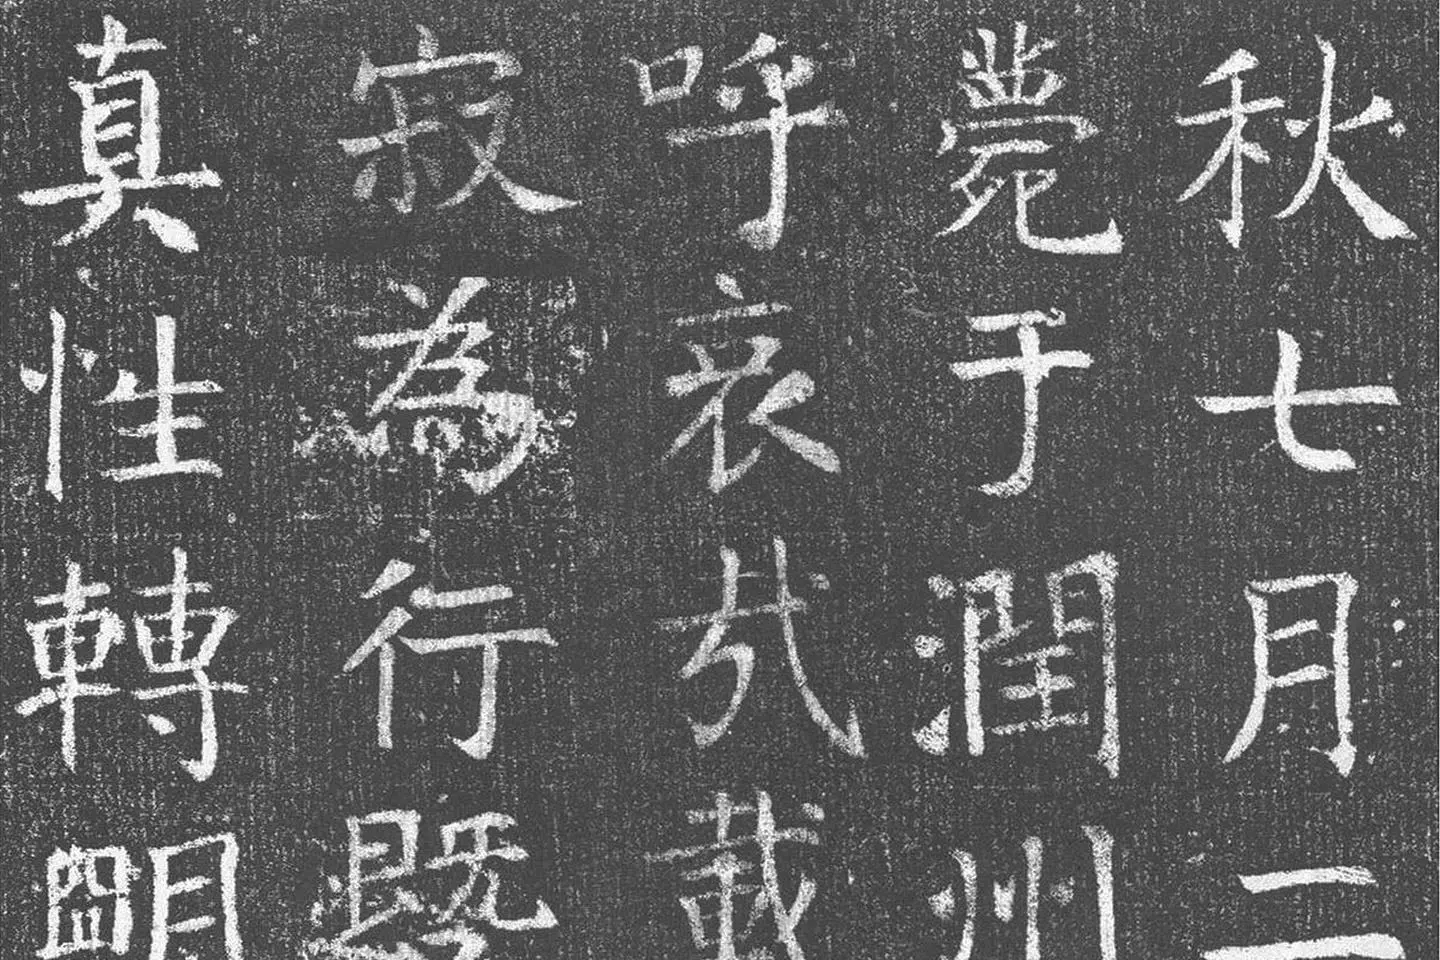 秋七月二
薨于潤州
呼哀哉載
寂為行暨
真性轉朙